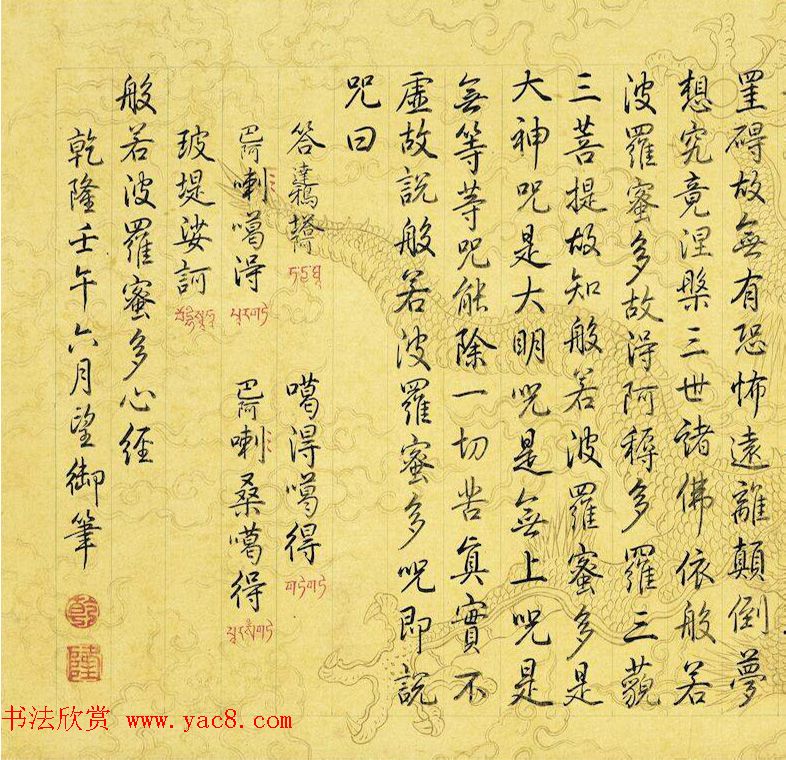 罣碍故無有恐怖遠離顛倒夢
想究竟涅槃三世諸佛依般若
波羅蜜多故得阿耨多羅三藐
三菩提故知般若波羅蜜多是
大神咒是大明咒是無上咒是
無等等咒能除一切苦真實不
虛故說般若波羅蜜多咒即說
咒曰
答達鴉塔 噶得噶得
巴阿喇噶得 巴阿喇桑噶得
玻堤娑訶
般若波羅蜜多心經
乾隆壬午六月望御筆
乾
隆
书法欣赏 www.yac8.com